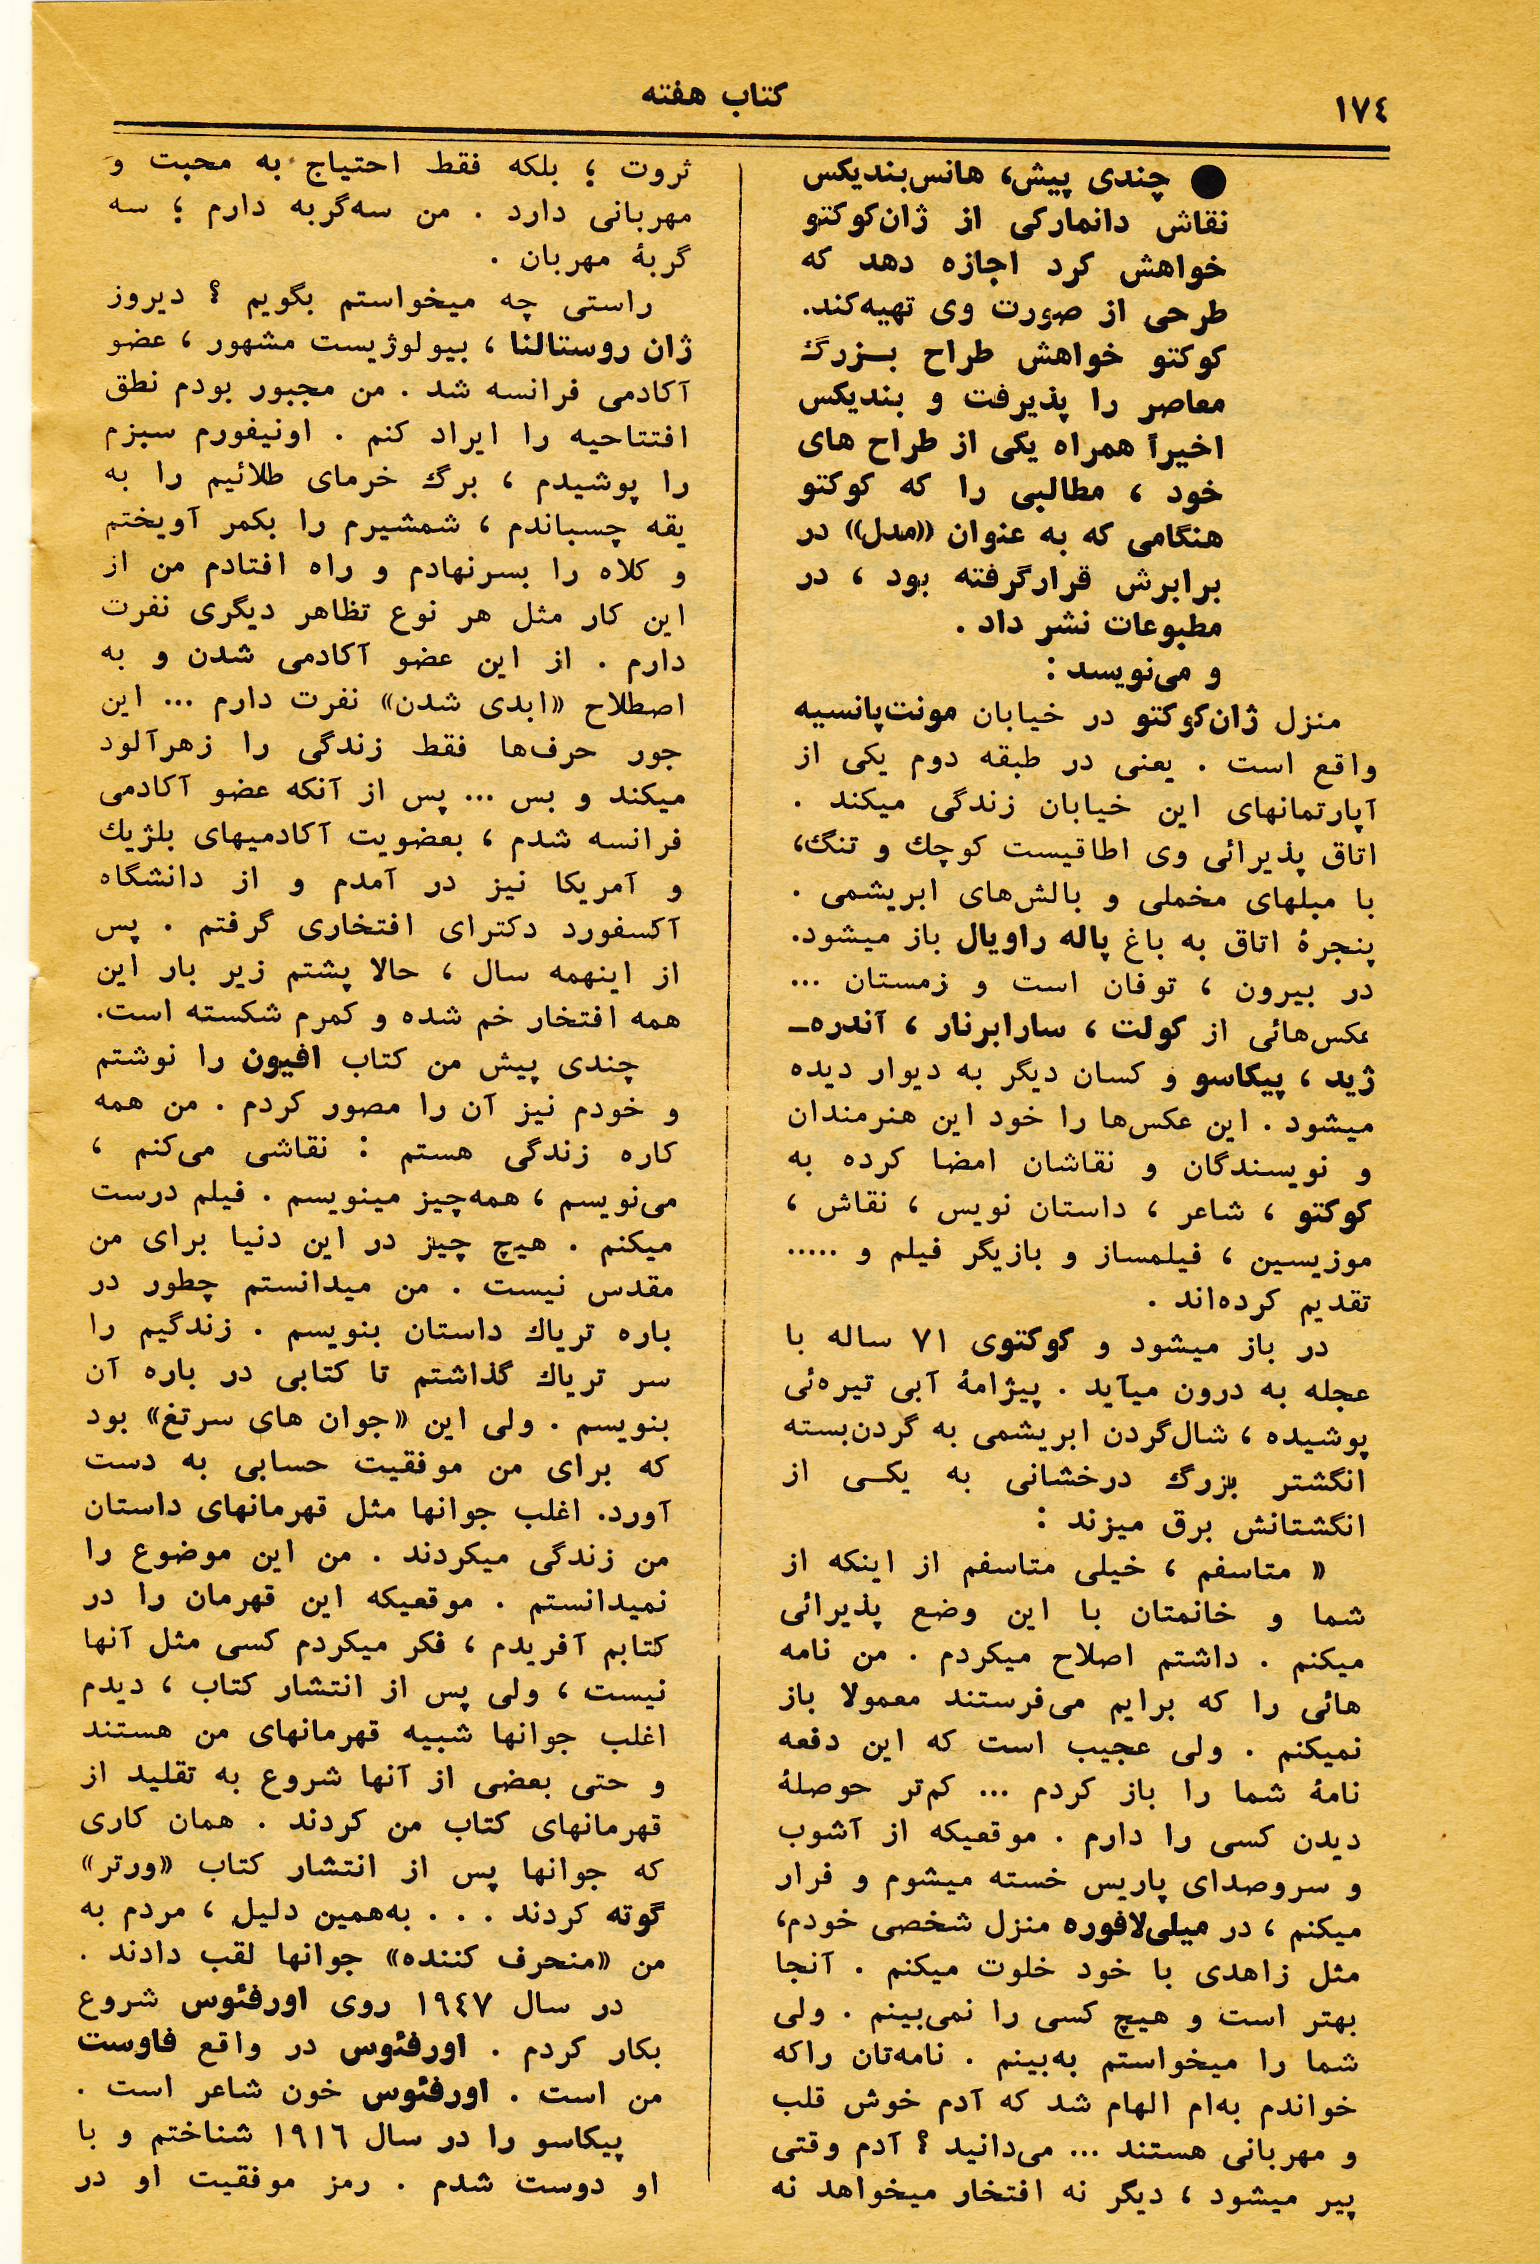 کتاب هفته
۱۷٤
● چندی پیش، هانس‌بندیکس
نقاش دانمارکی از ژان‌کوکتو
خواهش کرد اجازه دهد که
طرحی از صورت وی تهیه‌کند.
کوکتو خواهش طراح بـزرگ
معاصر را پذیرفت و بندیکس
اخیرآ همراه یکی از طراح های
خود ، مطالبی را که کوکتو
هنگامی که به عنوان «مدل» در
برابرش قرارگرفته بود ، در
مطبوعات نشر داد .
و می‌نویسد :
منزل ژان‌کوکتو در خیابان مونت‌پانسیه
واقع است . یعنی در طبقه دوم یکی از
آپارتمانهای این خیابان زندگی میکند .
اتاق پذیرائی وی اطاقیست کوچك و تنگ،
با مبلهای مخملی و بالش‌های ابریشمی .
پنجرهٔ اتاق به باغ پاله راویال باز میشود.
در بیرون ، توفان است و زمستان ...
عکس‌هائی از کولت ، سارابرنار ، آندره‌ـ
ژید ، پیکاسو و کسان دیگر به دیوار دیده
میشود . این عکس‌ها را خود این هنرمندان
و نویسندگان و نقاشان امضا کرده به
کوکتو ، شاعر ، داستان نویس ، نقاش ،
موزیسین ، فیلمساز و بازیگر فیلم و .....
تقدیم کرده‌اند .
در باز میشود و کوکتوی ۷۱ ساله با
عجله به درون میآید . پیژامهٔ آبی تیره‌ئی
پوشیده ، شال‌گردن ابریشمی به گردن‌بسته
انگشتر بزرگ درخشانی به یکـی از
انگشتانش برق میزند :
« متاسفم ، خیلی متاسفم از اینکه از
شما و خانمتان با این وضع پذیرائی
میکنم . داشتم اصلاح میکردم . من نامه
هائی را که برایم می‌فرستند معمولا باز
نمیکنم . ولی عجیب است که این دفعه
نامهٔ شما را باز کردم ... کم‌تر حوصلهٔ
دیدن کسی را دارم . موقعیکه از آشوب
و سروصدای پاریس خسته میشوم و فرار
میکنم ، در میلی‌لافوره منزل شخصی خودم،
مثل زاهدی با خود خلوت میکنم . آنجا
بهتر است و هیچ کسی را نمی‌بینم . ولی
شما را میخواستم به‌بینم . نامه‌تان راکه
خواندم به‌ام الهام شد که آدم خوش قلب
و مهربانی هستند ... می‌دانید ؟ آدم وقتی
پیر میشود ، دیگر نه افتخار میخواهد نه
ثروت ؛ بلکه فقط احتیاج به محبت و
مهربانی دارد . من سه‌گربه دارم ؛ سه
گربهٔ مهربان .
راستی چه میخواستم بگویم ؟ دیروز
ژان روستالنا ، بیولوژیست مشهور ، عضو
آکادمی فرانسه شد . من مجبور بودم نطق
افتتاحیه را ایراد کنم . اونیفورم سبزم
را پوشیدم ، برگ خرمای طلائیم را به
یقه چسباندم ، شمشیرم را بکمر آویختم
و کلاه را بسرنهادم و راه افتادم من از
این کار مثل هر نوع تظاهر دیگری نفرت
دارم . از این عضو آکادمی شدن و به
اصطلاح «ابدی شدن» نفرت دارم ... این
جور حرف‌ها فقط زندگی را زهرآلود
میکند و بس ... پس از آنکه عضو آکادمی
فرانسه شدم ، بعضویت آکادمیهای بلژیك
و آمریکا نیز در آمدم و از دانشگاه
آکسفورد دکترای افتخاری گرفتم . پس
از اینهمه سال ، حالا پشتم زیر بار این
همه افتخار خم شده و کمرم شکسته است.
چندی پیش من کتاب افیون را نوشتم
و خودم نیز آن را مصور کردم . من همه
کاره زندگی هستم : نقاشی می‌کنم ،
می‌نویسم ، همه‌چیز مینویسم . فیلم درست
میکنم . هیچ چیز در این دنیا برای من
مقدس نیست . من میدانستم چطور در
باره تریاك داستان بنویسم . زندگیم را
سر تریاك گذاشتم تا کتابی در باره آن
بنویسم . ولی این «جوان های سرتغ» بود
که برای من موفقیت حسابی به دست
آورد. اغلب جوانها مثل قهرمانهای داستان
من زندگی میکردند . من این موضوع را
نمیدانستم . موقعیکه این قهرمان را در
کتابم آفریدم ، فکر میکردم کسی مثل آنها
نیست ، ولی پس از انتشار کتاب ، دیدم
اغلب جوانها شبیه قهرمانهای من هستند
و حتی بعضی از آنها شروع به تقلید از
قهرمانهای کتاب من کردند . همان کاری
که جوانها پس از انتشار کتاب «ورتر»
گوته کردند . . . به‌همین دلیل ، مردم به
من «منحرف کننده» جوانها لقب دادند .
در سال ۱۹٤۷ روی اورفئوس شروع
بکار کردم . اورفئوس در واقع فاوست
من است . اورفئوس خون شاعر است .
پیکاسو را در سال ۱۹۱٦ شناختم و با
او دوست شدم . رمز موفقیت او در